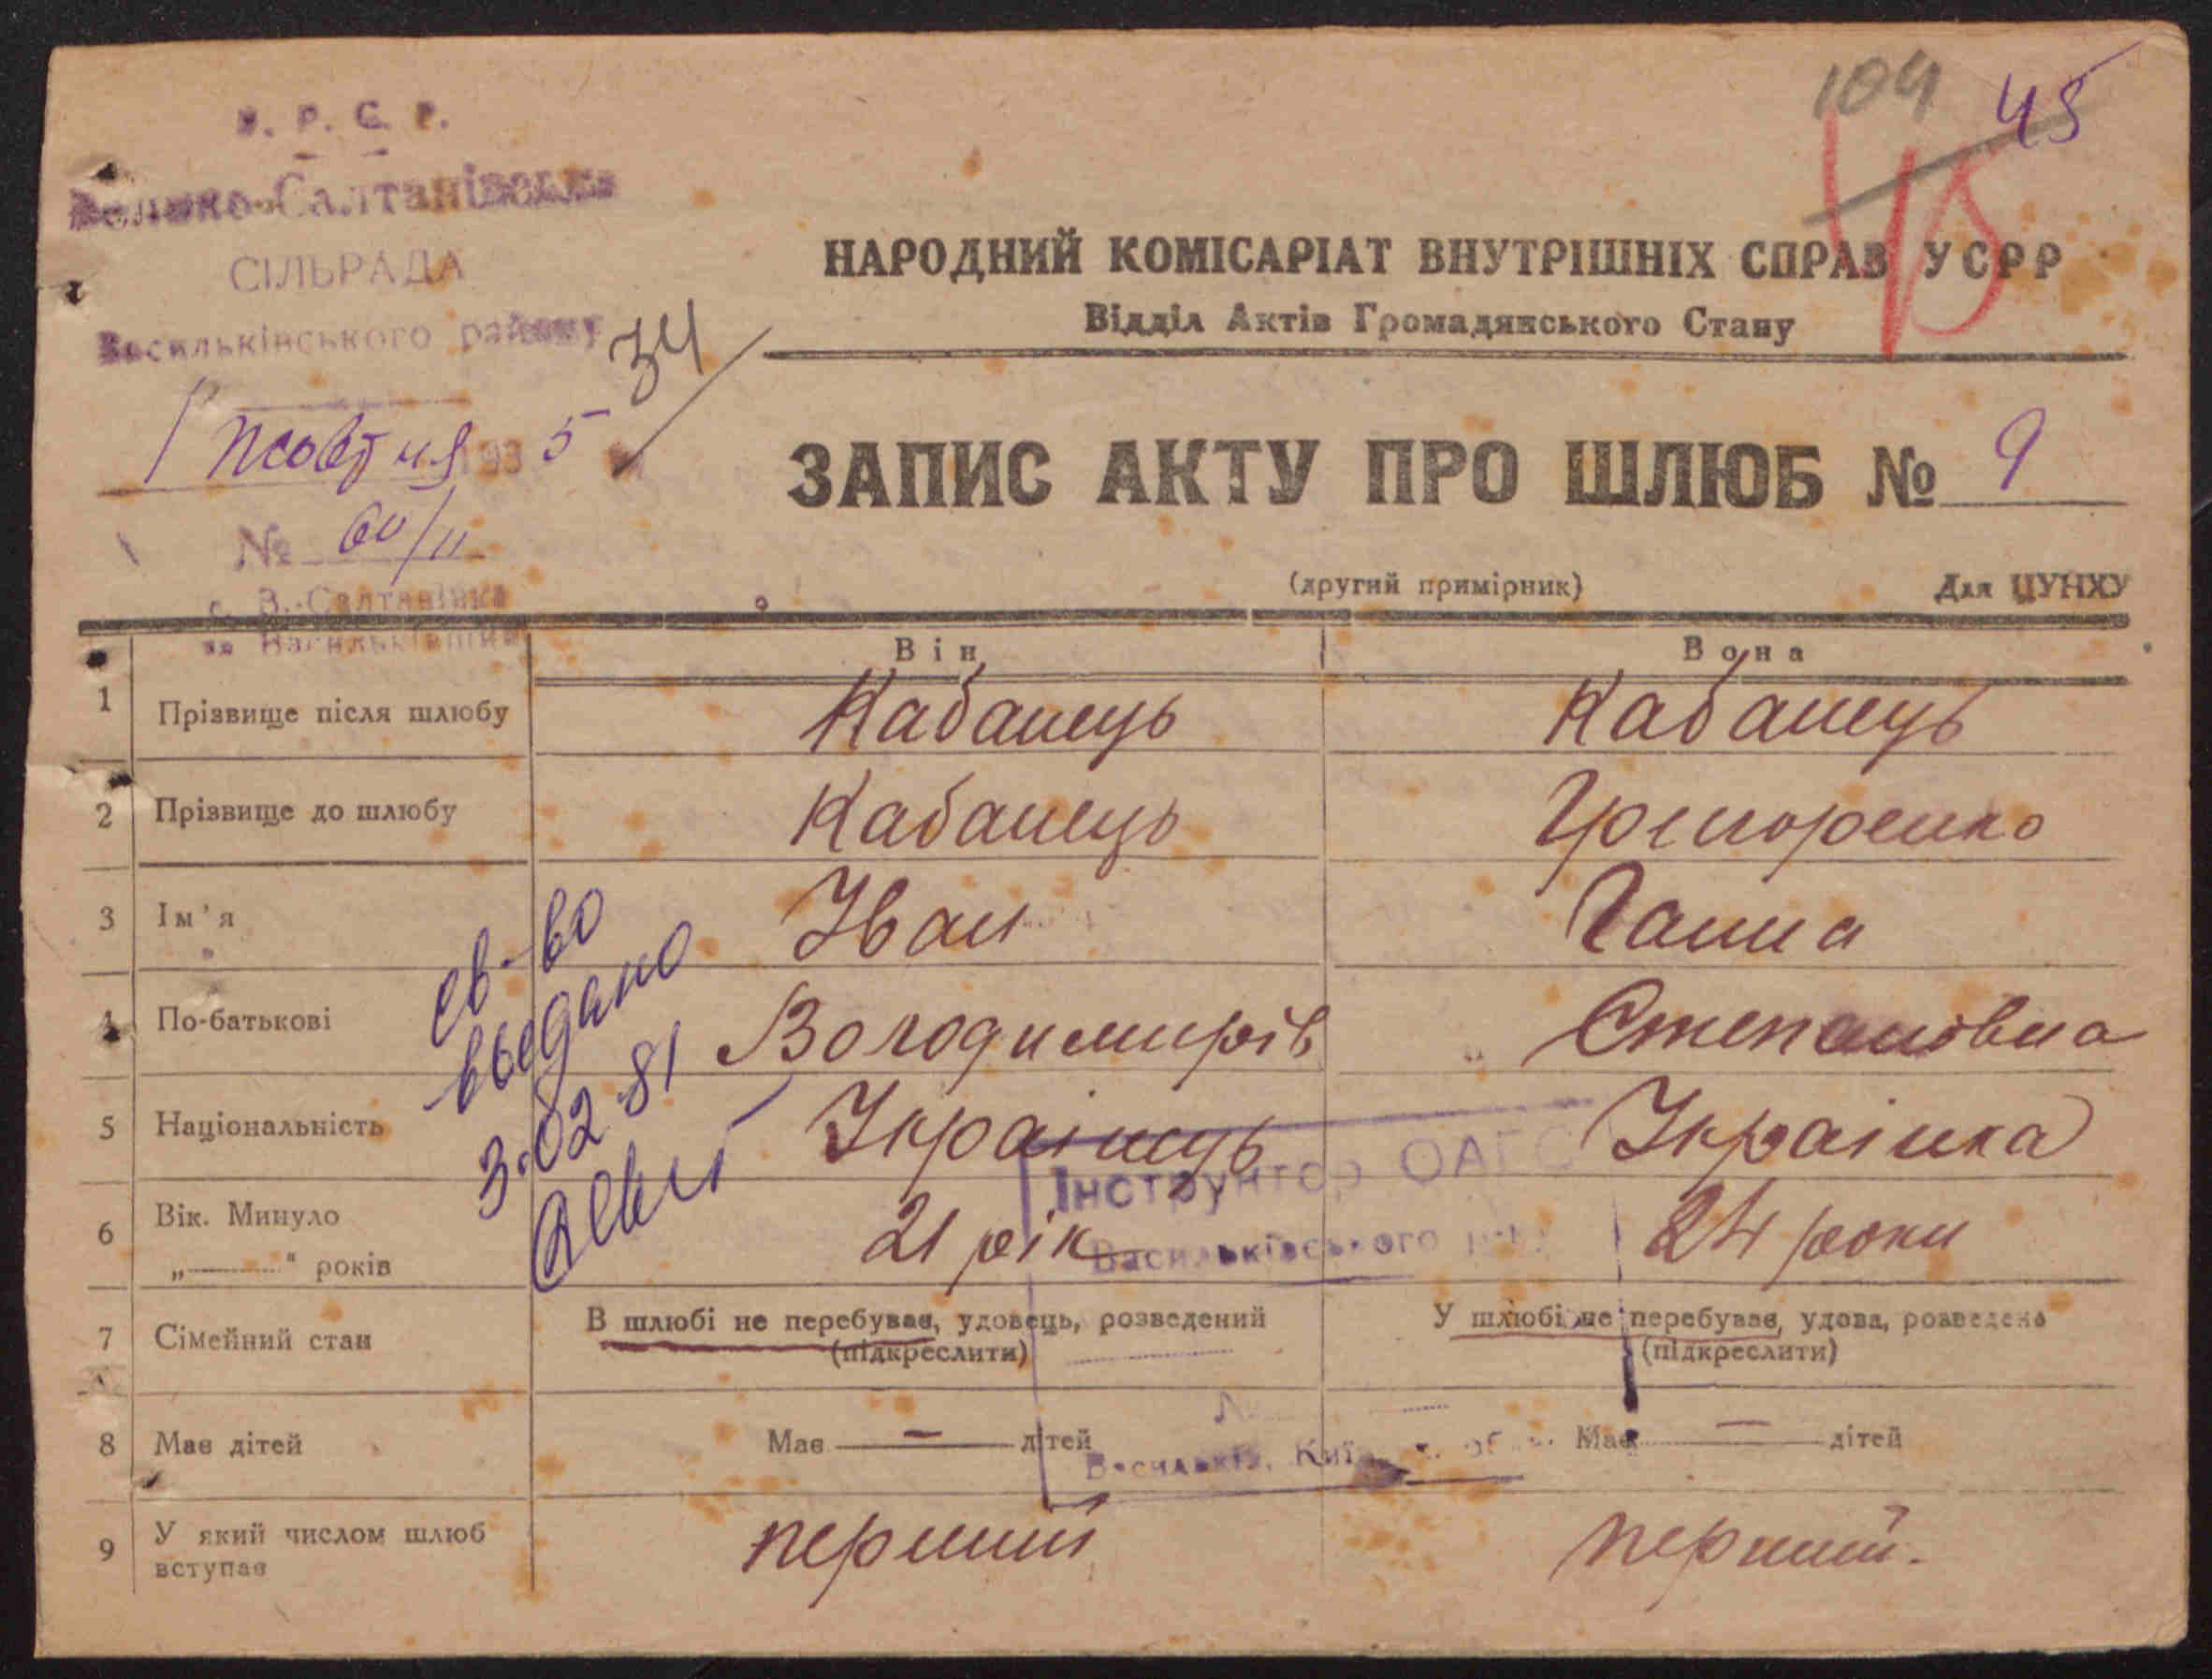 У. Р. С. Р.
Велико-Салтанівська
СІЛЬРАДА
Васильківського району
1 жовтня 1935
№ 60/11
с. В.-Салтанівка
на Васильківщині
34
104 45
45
НАРОДНИЙ КОМІСАРІАТ ВНУТРІШНІХ СПРАВ УСРР
Відділ Актів Громадянського Стану
ЗАПИС АКТУ ПРО ШЛЮБ № 9
(другий примірник) Для ЦУНХУ
Він Вона
1 Прізвище після шлюбу Кабанець Кабанець
2 Прізвище до шлюбу Кабанець Григоренко
3 Ім'я Іван Ганна
4 По-батькові Володимирів Степановна
5 Національність Українець Українка
6 Вік. Минуло 21 рік 24 роки
„ “ років
7 Сімейний стан В шлюбі не перебуває, удовець, розведений У шлюбі не перебуває, удова, розведена
(підкреслити) (підкреслити)
8 Має дітей Має — дітей Має — дітей
9 У який числом шлюб перший перший.
вступає
св-во
выдано
3.02.81
Інструктор ОАГС
Васильківського
№
Васильків, Київ обл.